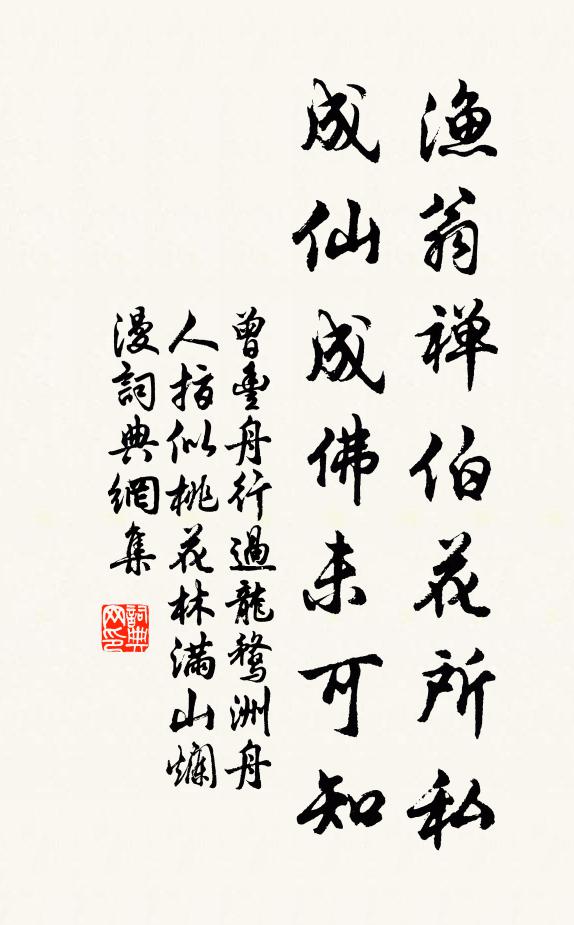 渔翁禅伯花所私
成仙成佛未可知
曾豐舟行過龍鵞洲舟
人指似桃花林滿山爛
漫詞典網集
詞典
网印